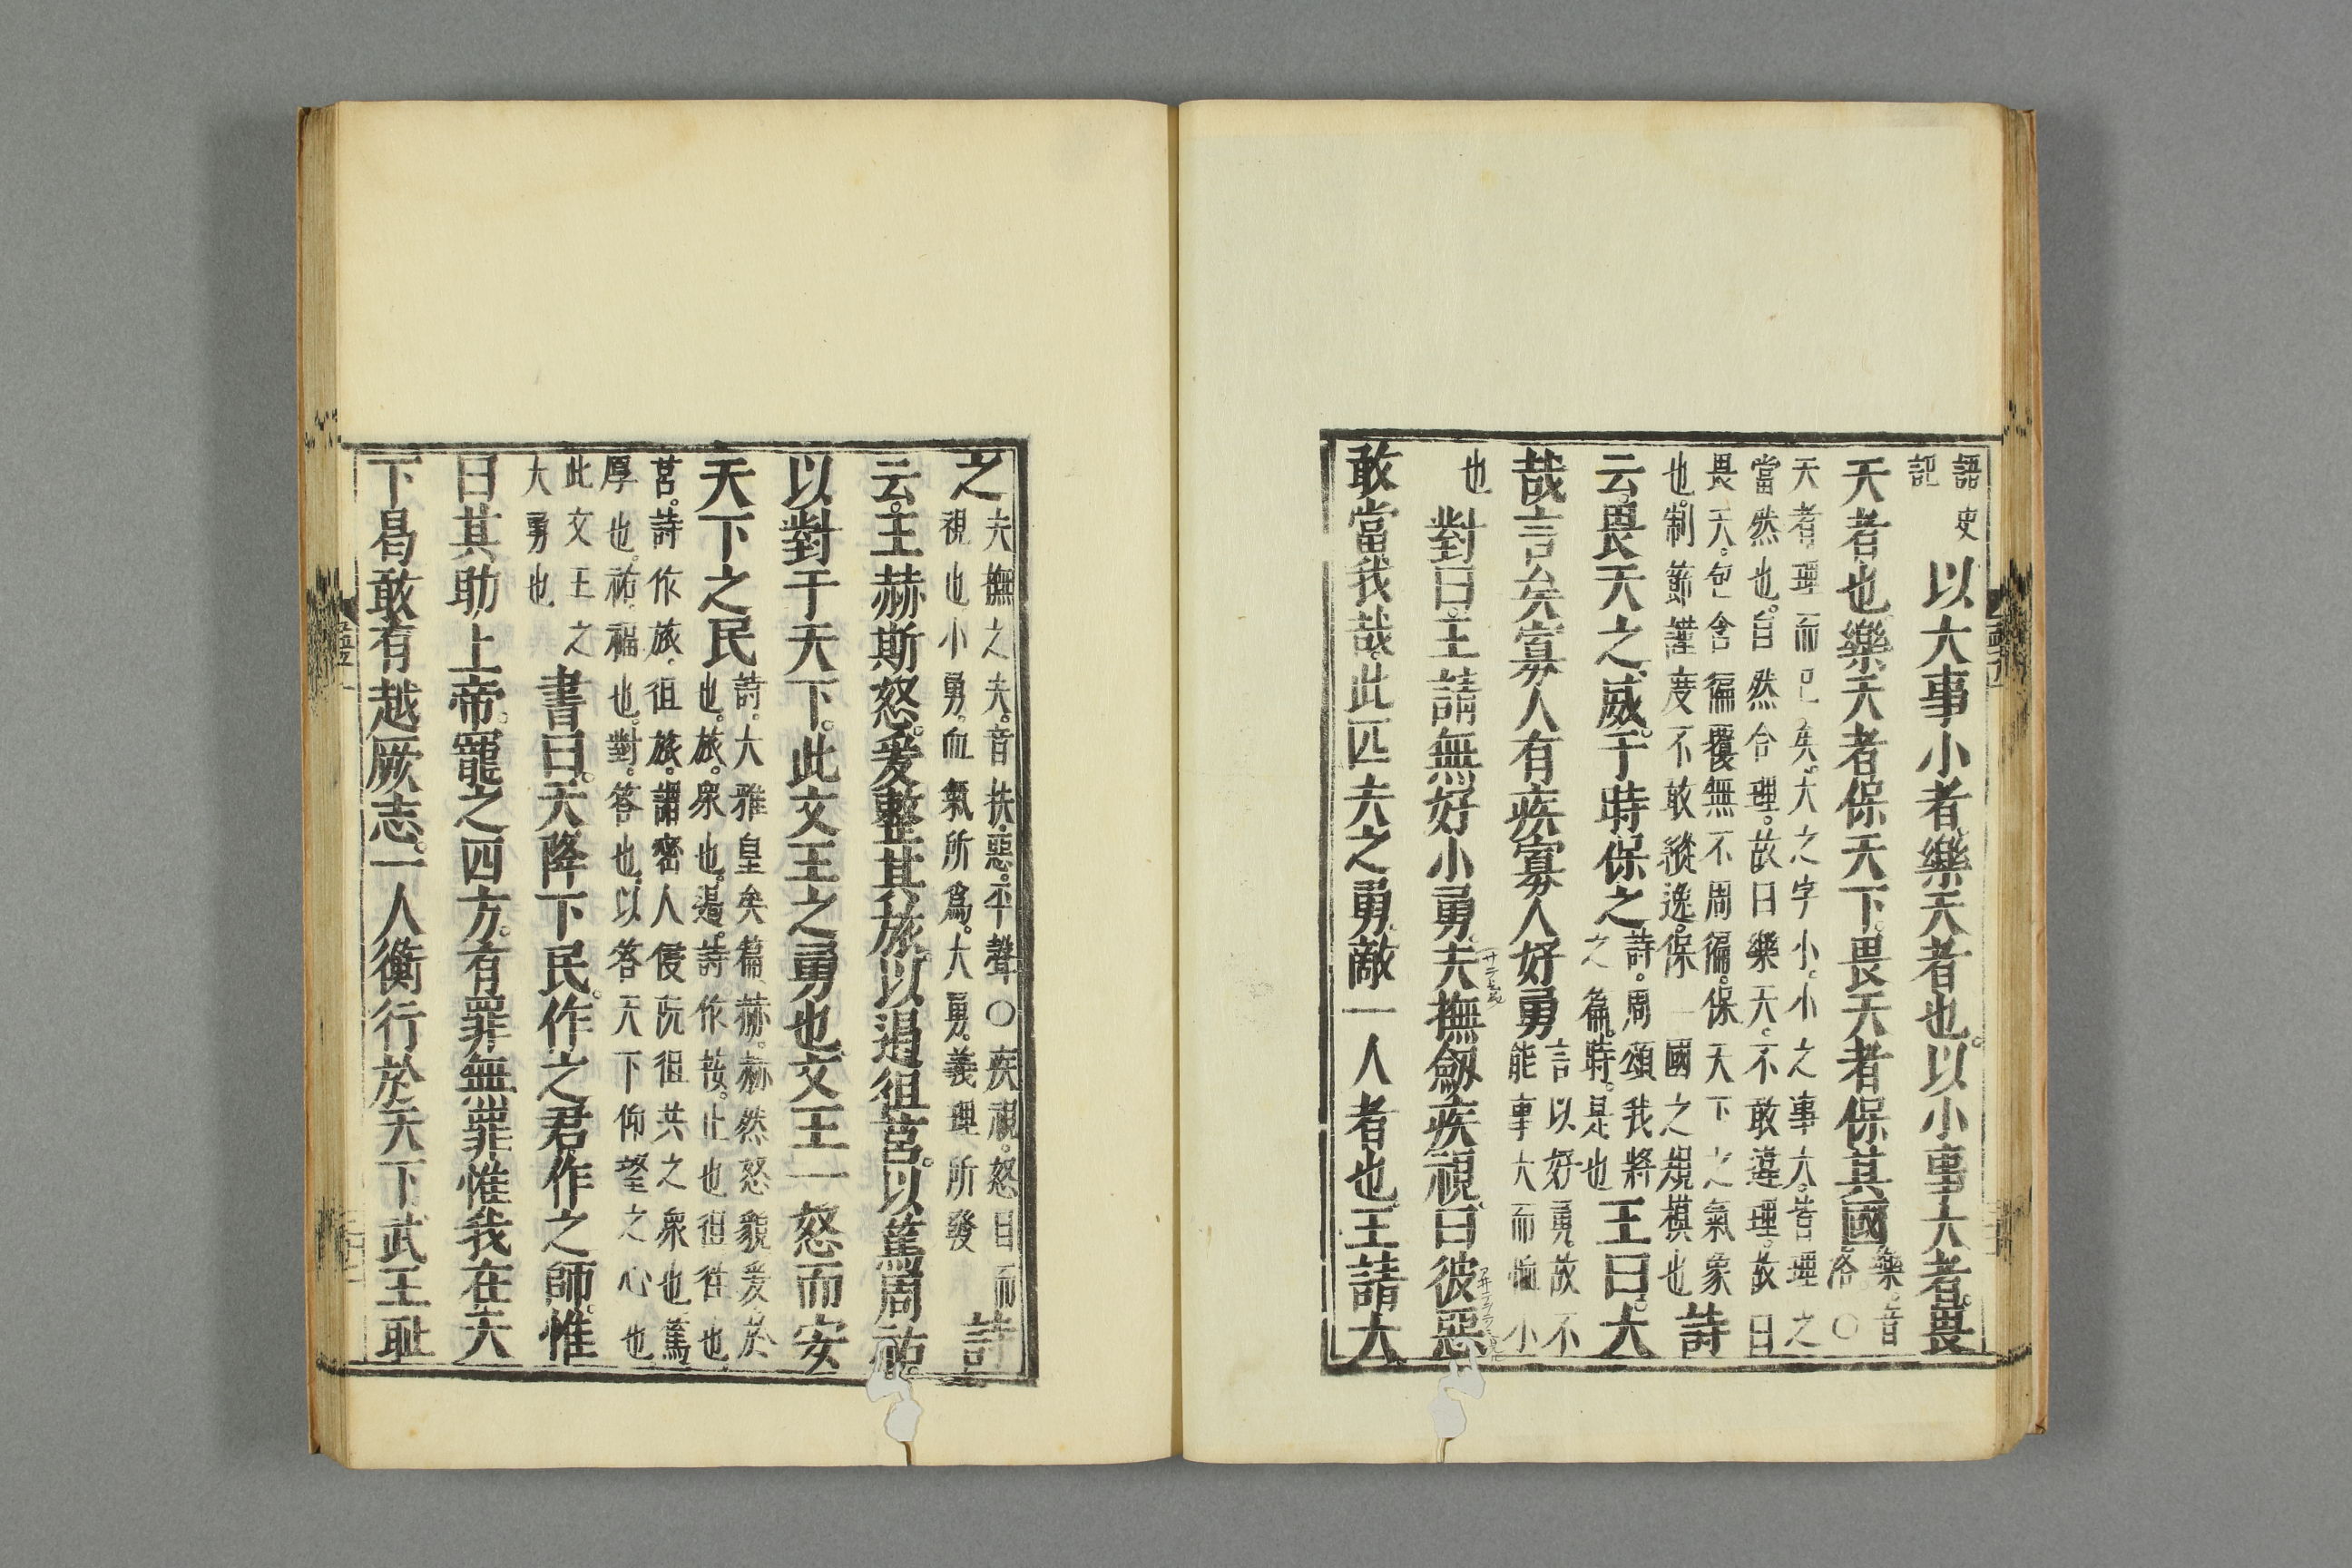 語史
記
以大事小者樂天者也。以小事大者。畏
天者也樂天者保天下。畏天者保其國
樂。音
洛。〇
天者理而已矣。大之字小。小之事大。皆理之
當然也。自然合理。故曰樂天。不敢違理。故曰
畏天。包含徧覆無不周徧。保天下之氣象
也。制節謹度不敢縱逸。保一國之規模也
詩
云。畏天之威。于時保之
詩。周頌我將
之篇。時。是也
王曰。大
哉言矣寡人有疾寡人好勇
言以好勇。故不
能事大而恤小
也
對曰。王請無好小勇。夫撫劒疾視。曰彼惡
敢當我哉。此匹夫之勇。敵一人者也。王請大
之
夫撫之夫。音扶。惡。平聲〇疾視。怒目而
視也小勇。血氣所爲。大勇。義理所發
詩
云。王赫斯怒。爰整其旅。以遏徂莒。以篤周祜。
以對于天下。此文王之勇也。文王一怒而安
天下之民
詩。大雅皇矣篇。赫。赫然怒貌爰。於
也。旅。衆也。遏。詩。作按。止也徂。往也。
莒。詩作旅。徂旅。謂密人侵阮徂共之衆也篤
厚也。祜。福也。對。答也。以答天下仰望之心也
此文王之
大勇也
書曰。天降下民。作之君作之師。惟
曰其助上帝。寵之四方。有罪無罪惟我在天
下曷敢有越厥志。一人衡行於天下武王恥